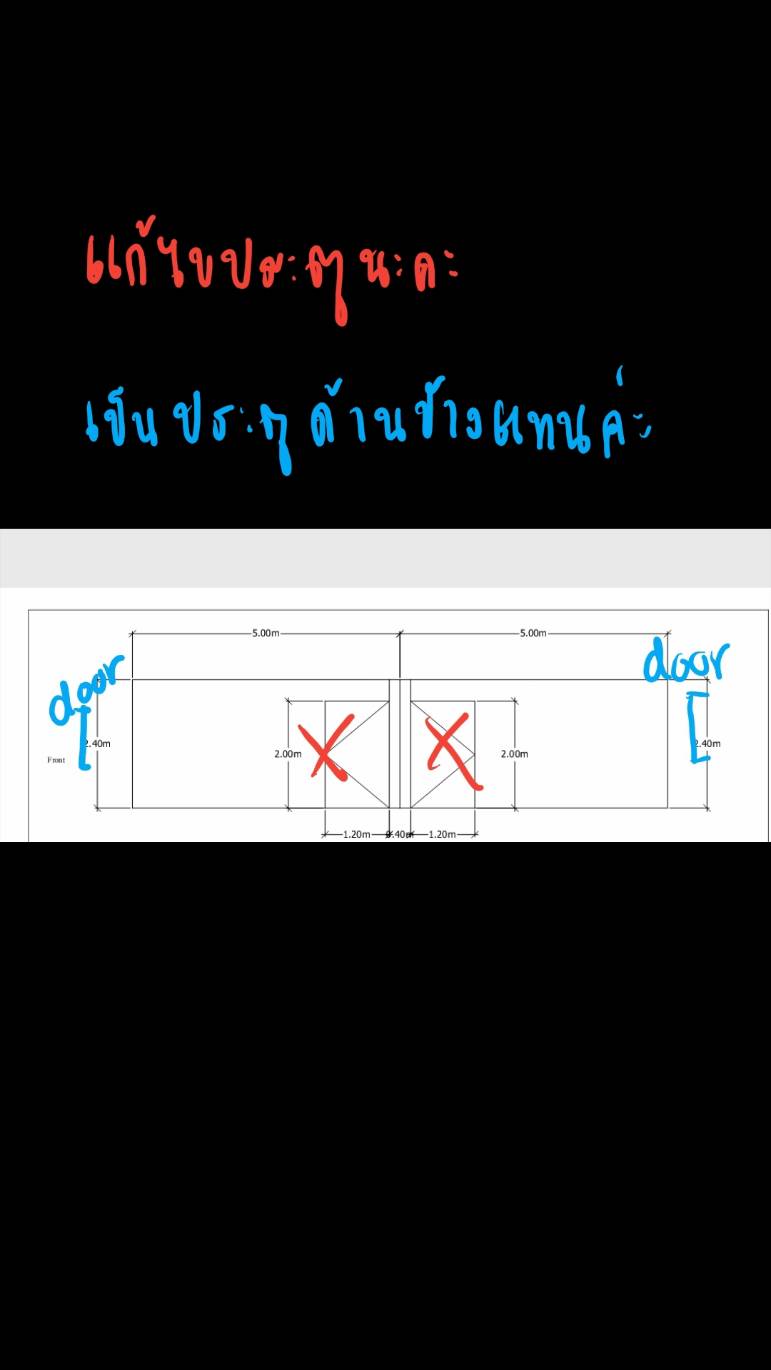 แก้ไขประตูนะคะ
เป็นประตูด้านข้างแทนค่ะ
5.00m 5.00m
door door
2.40m 2.00m 2.00m 2.40m
Front
1.20m 0.40m 1.20m